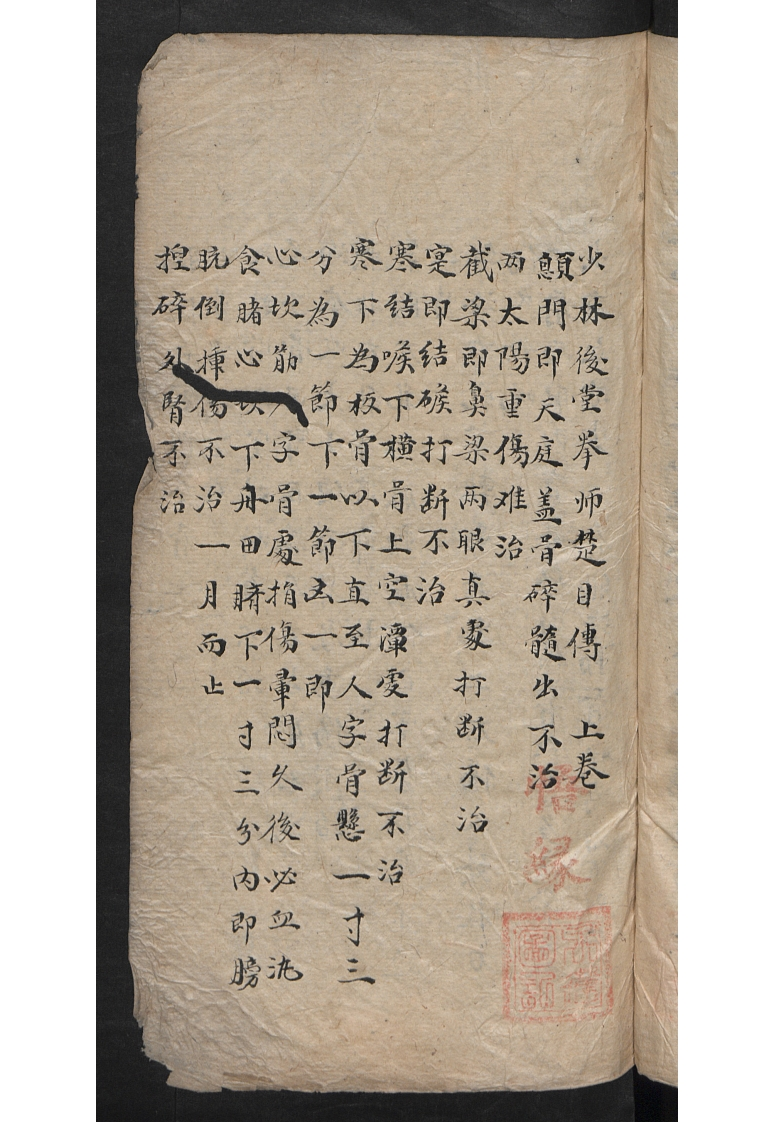 少林後堂拳师楚目傳　上卷
顖門即天庭盖骨碎髓出不治
两太陽重傷难治
截梁即鼻梁两眼真䖏打断不治
寔即结喉打断不治
寒结喉下横骨上空潭䖏打断不治
寒下為板骨以下直至人字骨懸一寸三
分為一節下一節去一即
心坎筋人字骨䖏捐傷暈悶久後必血沇
食睹心坎下丹田臍下一寸三分内即膀
胱倒揷傷不治一月而止
捏碎外腎不治
悟緣